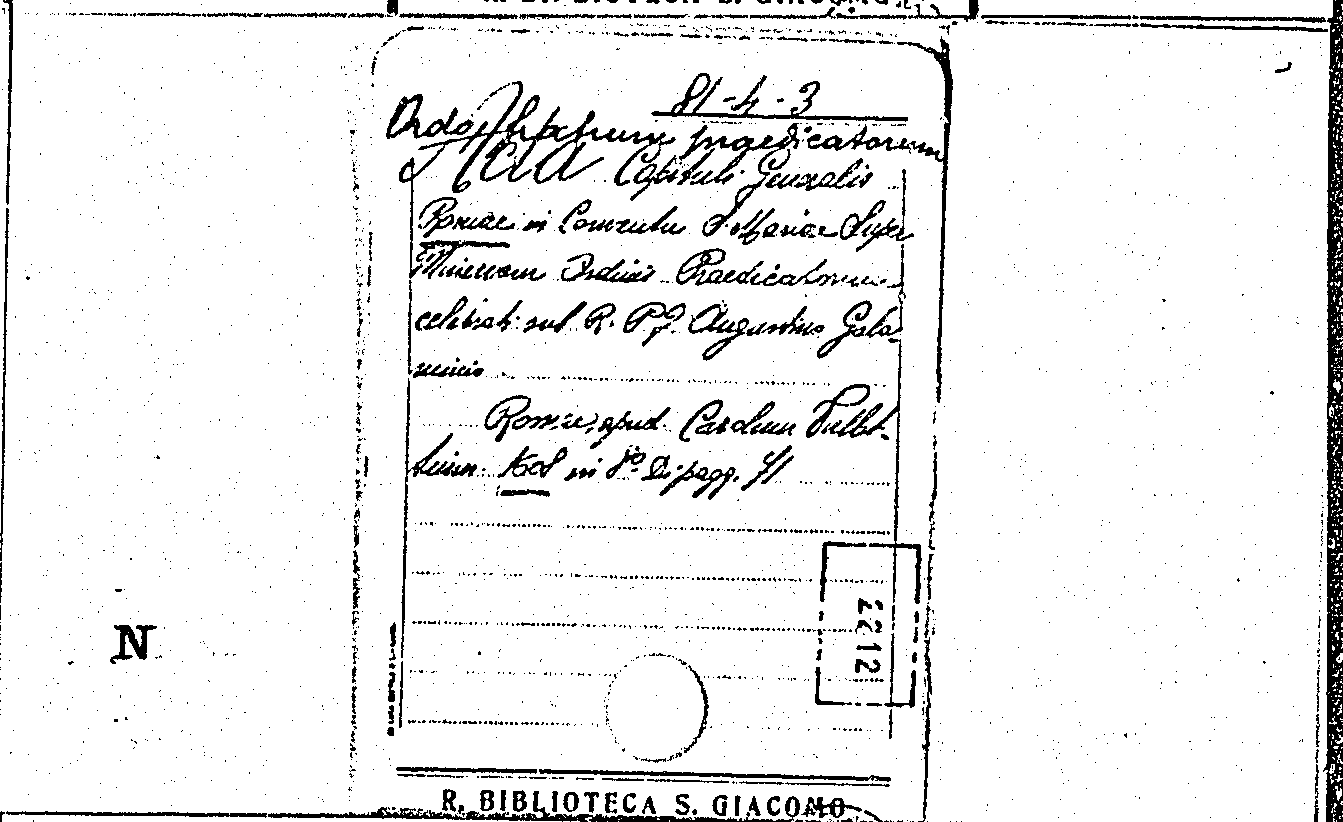 81-4-3
Ordo fratrum praedicatorum
ACTA Capituli Generalis
Romae in Conventu S. Mariae Super
Minervam Ordinis Praedicatorum
celebrati sub R. P. F. Augustino Gala-
minio
Romae, apud Carolum Vullet-
tum. 1608 in 8º Di pagg. 71
2212
N
R. BIBLIOTECA S. GIACOMO